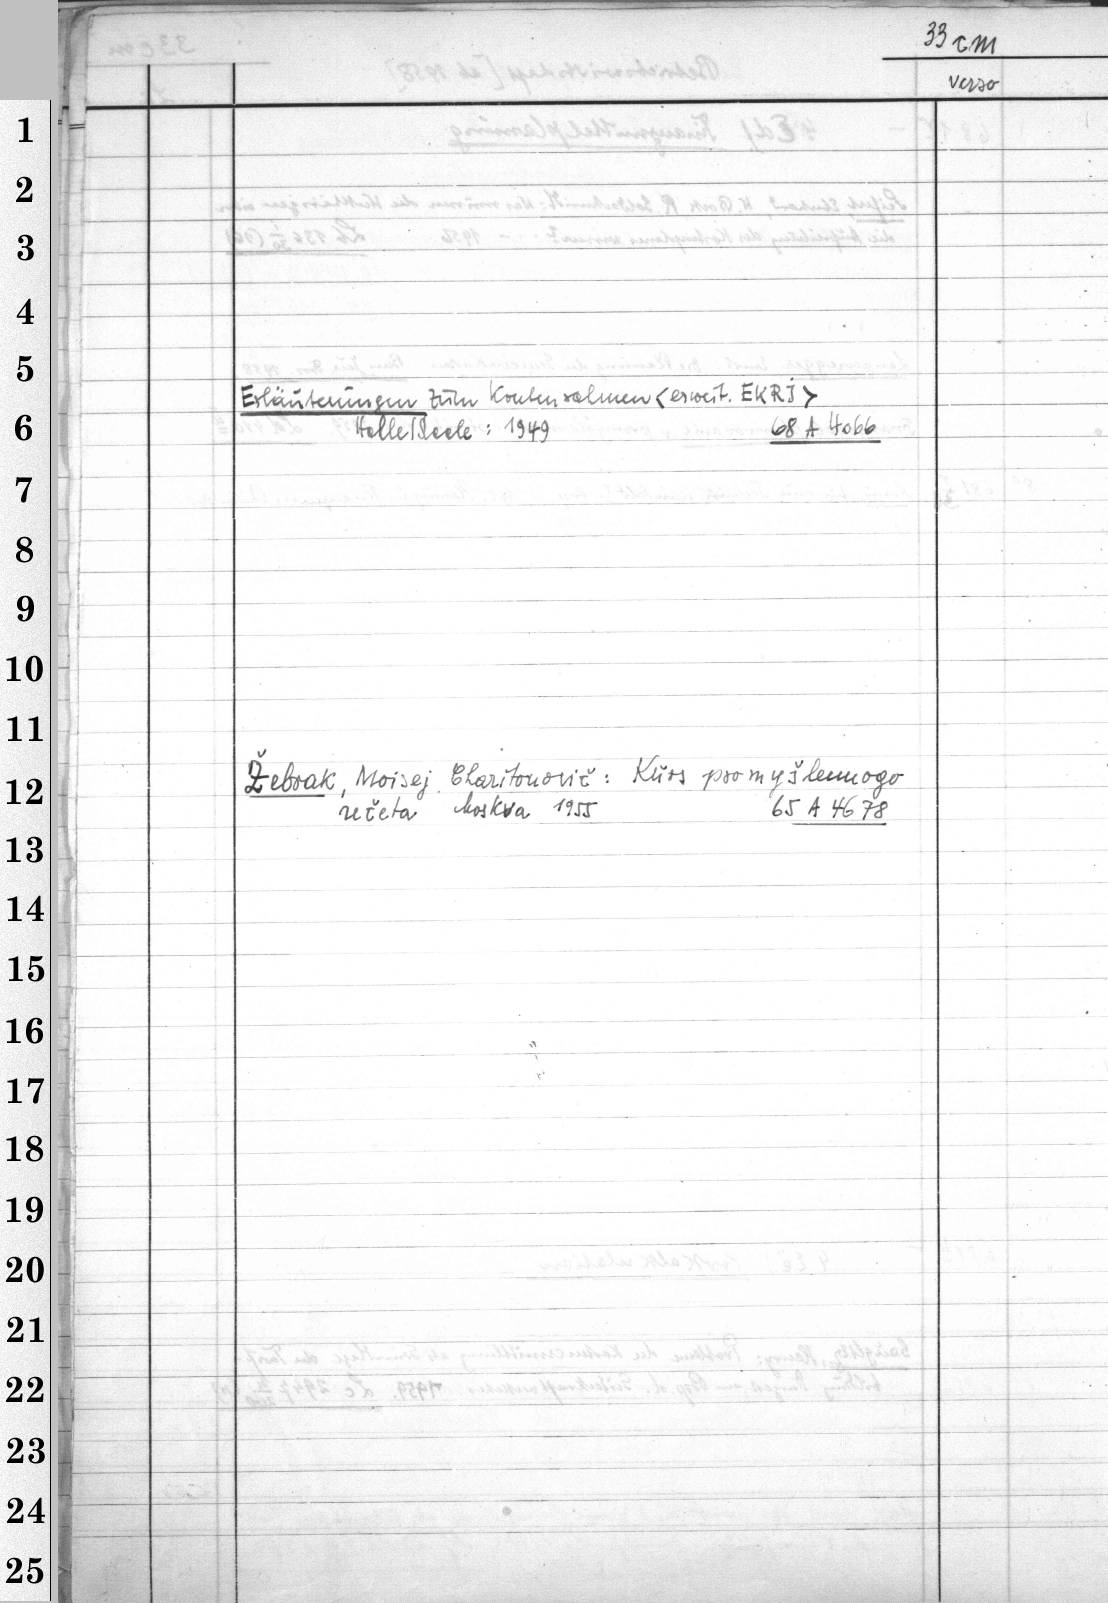 33 cm
verso
1
2
3
4
5
Erläuterungen zum Kontenrahmen <erweit. EKRI>
6
Halle/Saale: 1949 68 A 4066
7
8
9
10
11
Žebrak, Moisej Charitonovič: Kurs promyšlennogo
12
učeta Moskva 1955 65 A 4678
13
14
15
16
17
18
19
20
21
22
23
24
25